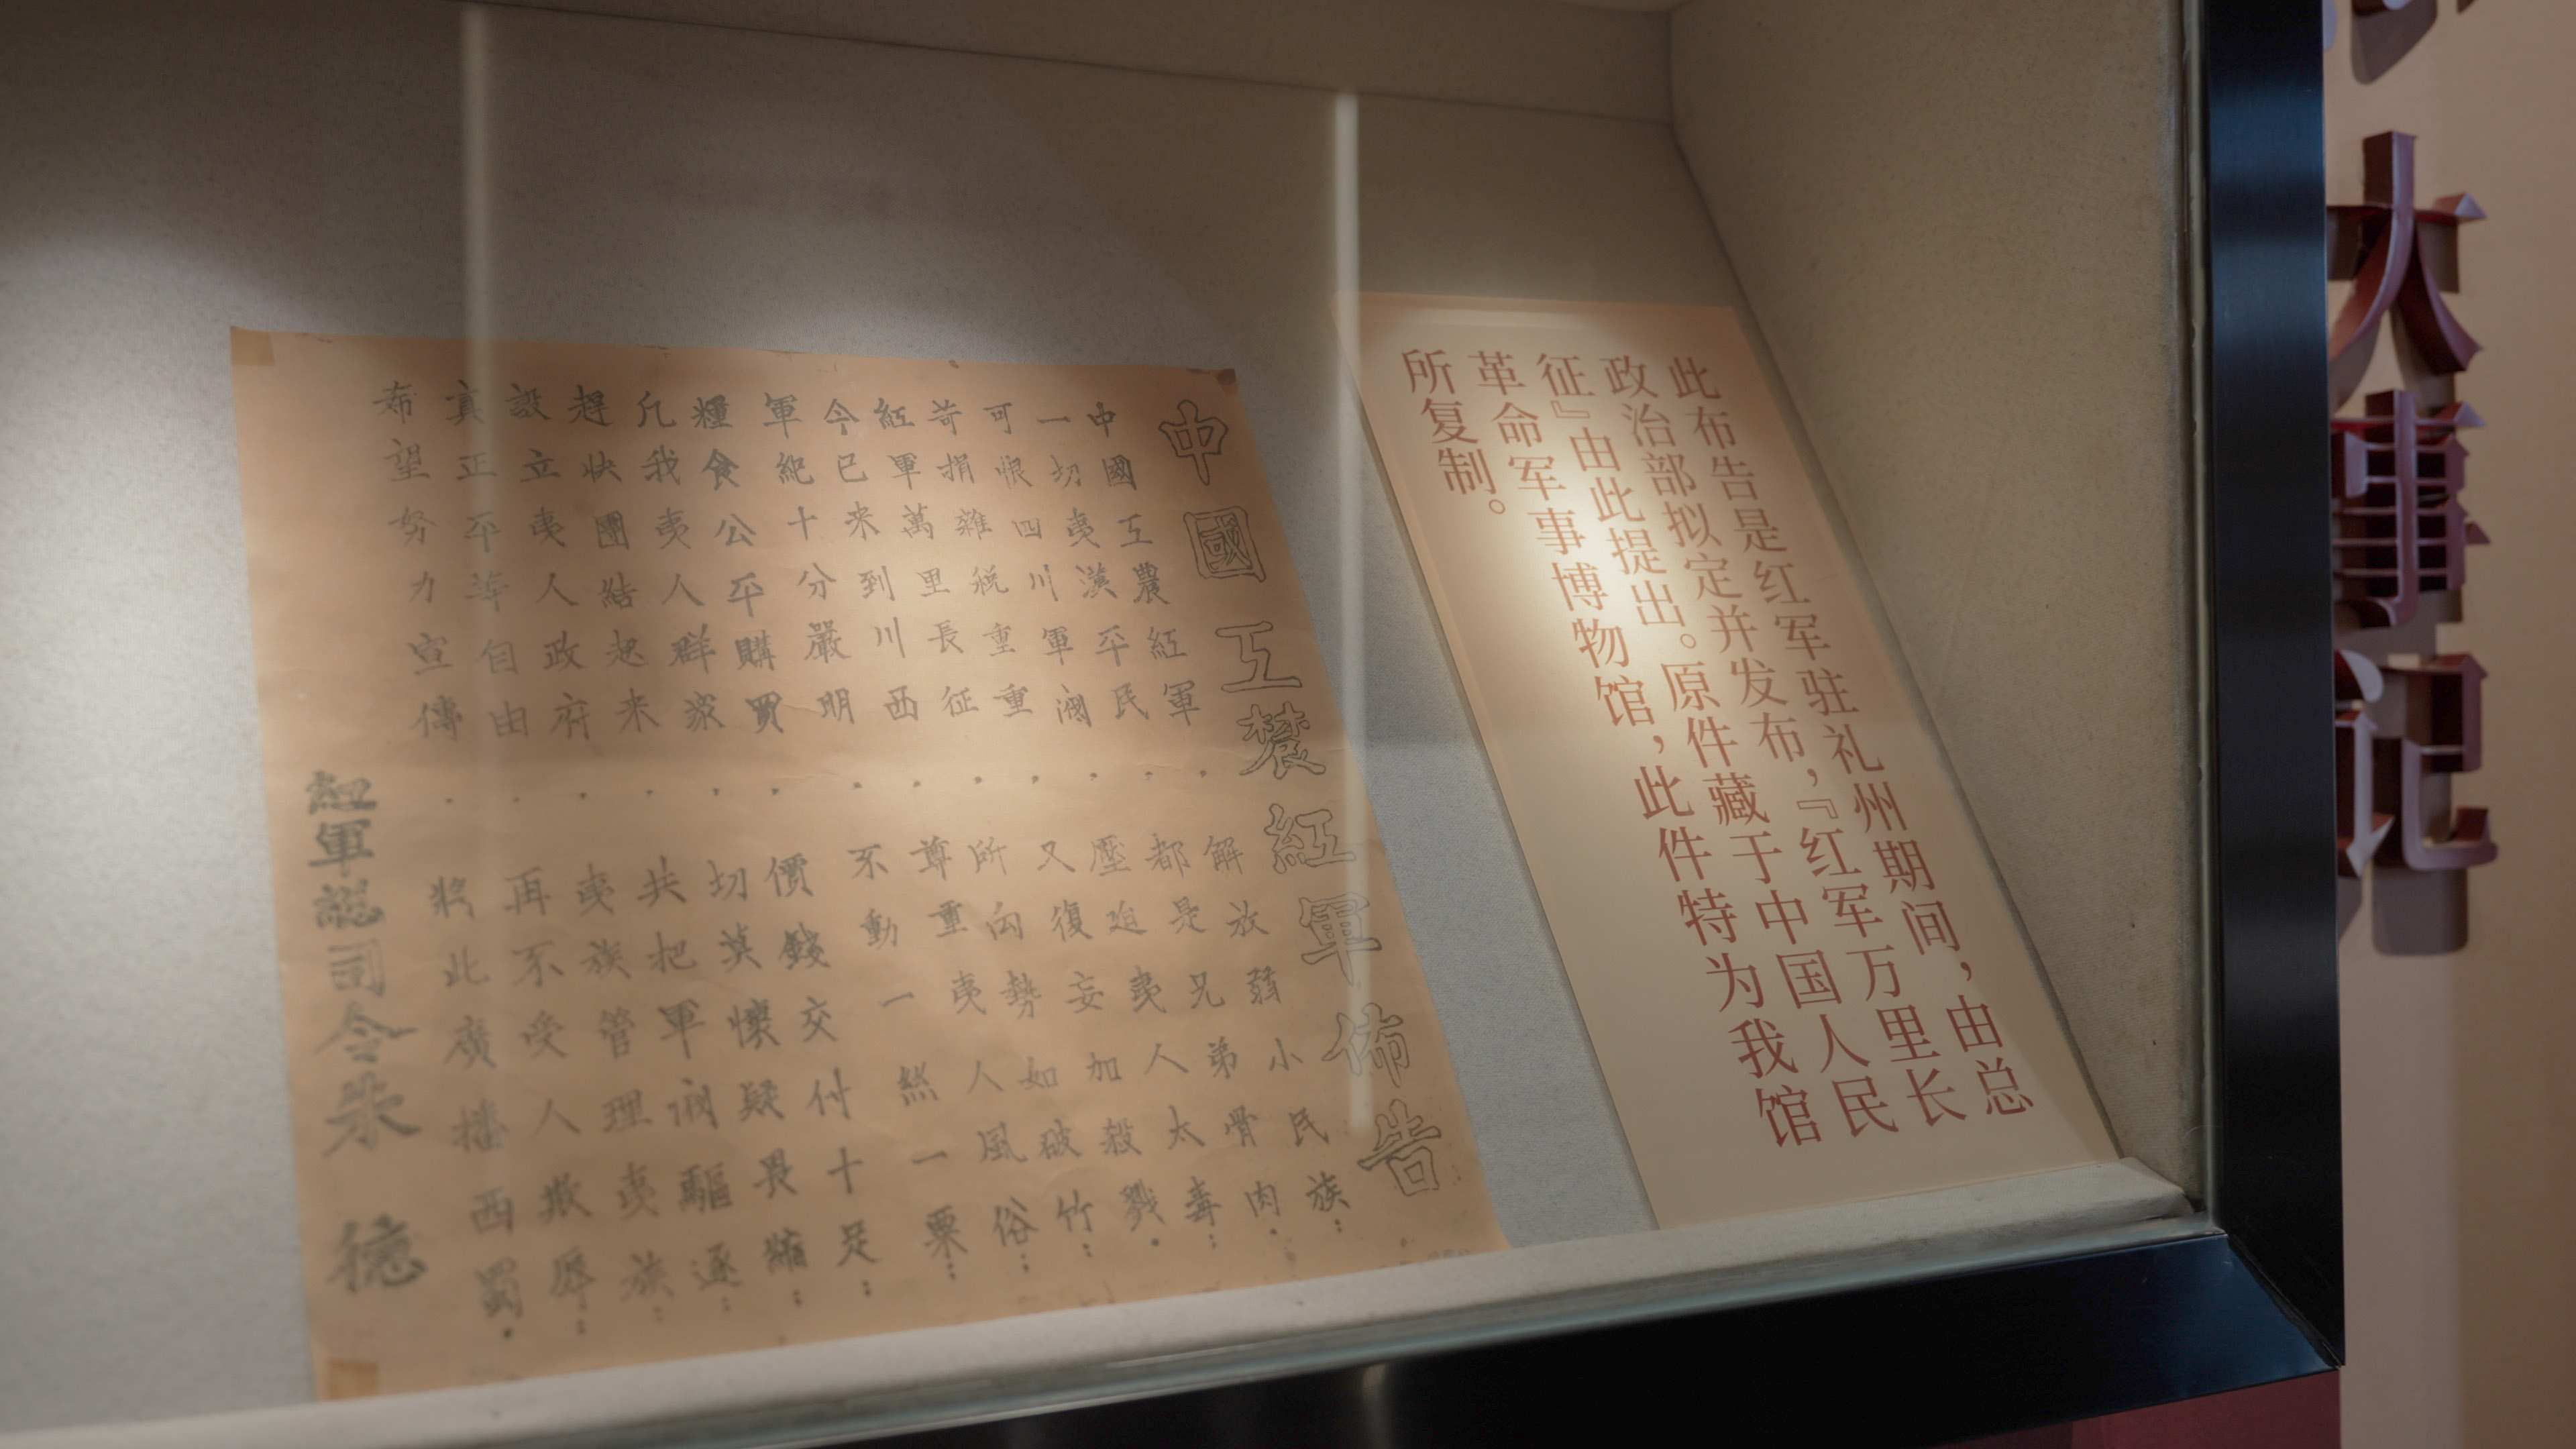 大事记
此布告是红军驻礼州期间，由总
政治部拟定并发布，『红军万里长
征』由此提出。原件藏于中国人民
革命军事博物馆，此件特为我馆
所复制。
中國工農紅軍佈告
中國工農紅軍．解放弱小民族：
一切夷漢平民．都是兄弟骨肉．
可恨四川軍閥．壓迫夷人太毒：
苛捐雜稅重重．又復妄加殺戮．
紅軍萬里長征．所向勢如破竹：
今已来到川西．尊重夷人風俗：
軍紀十分嚴明．不動一絲一粟：
糧食公平購買．價錢交付十足：
凡我夷人群衆．切莫懷疑畏縮：
趕快團結起来．共把軍閥驅逐：
設立夷人政府．夷族管理夷族：
真正平等自由．再不受人欺辱：
希望努力宣傳．將此廣播西蜀．
紅軍總司令朱德